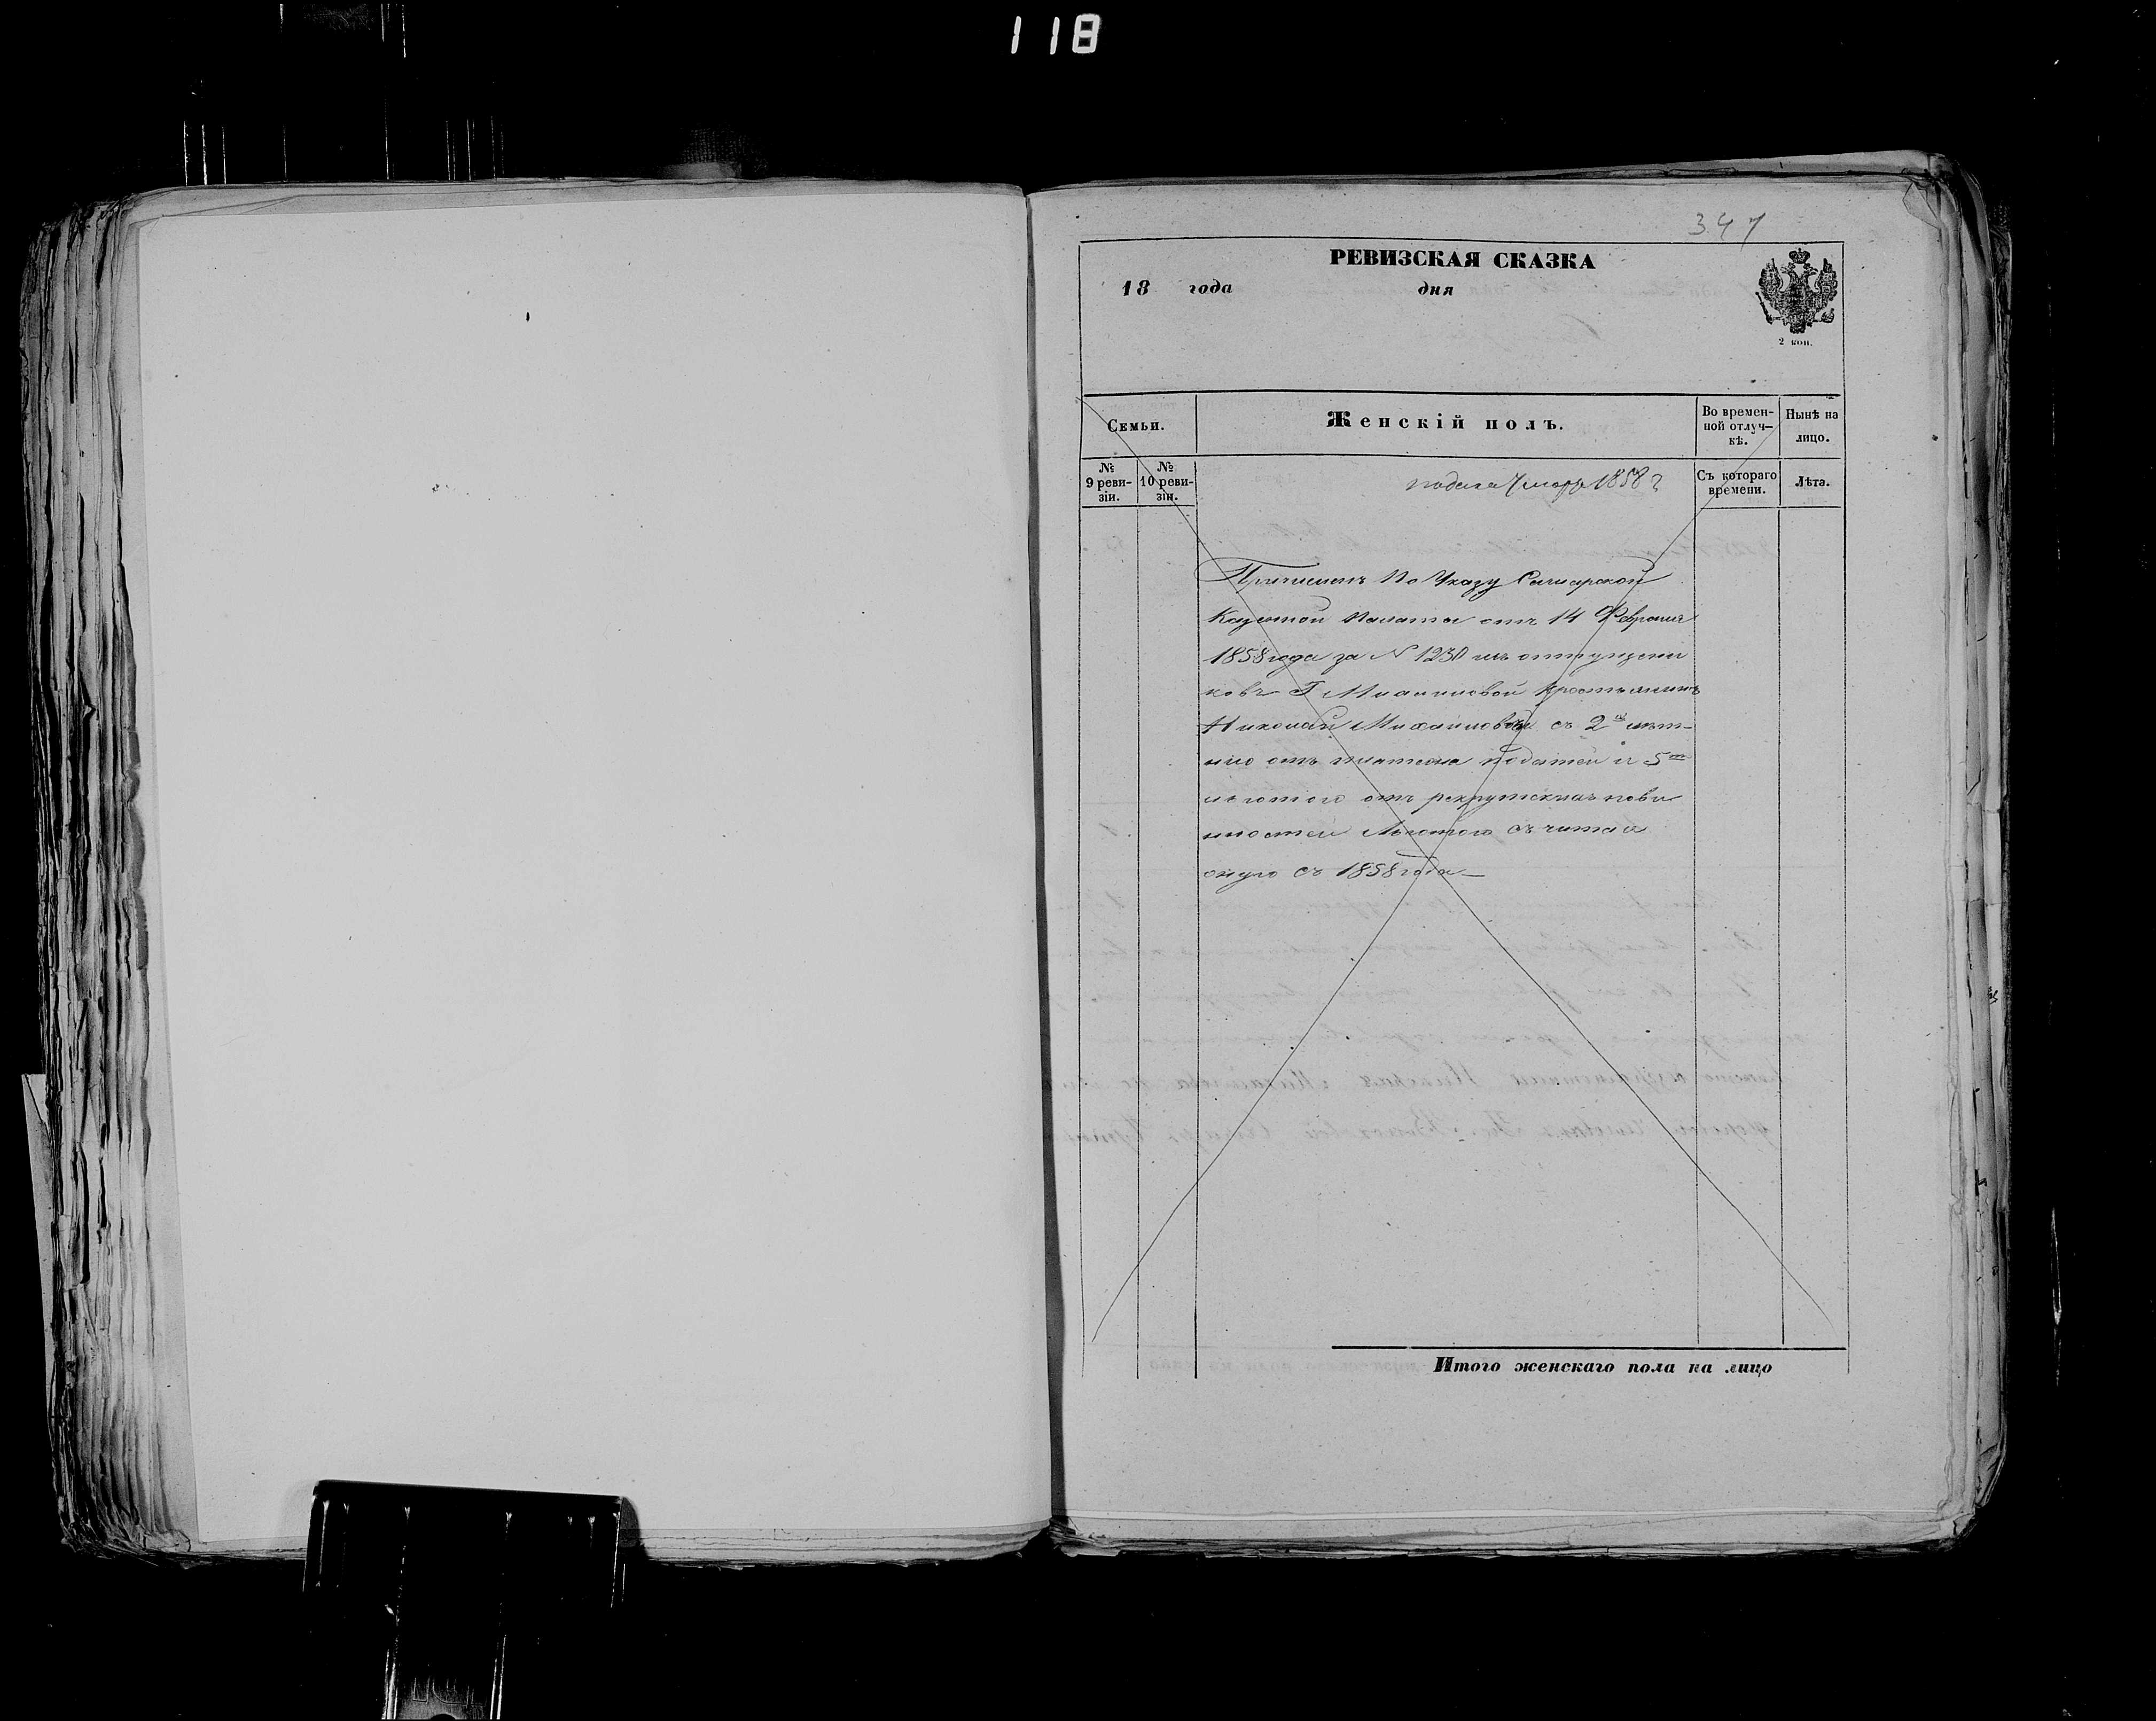 118
347
РЕВИЗСКАЯ СКАЗКА
18 года дня
2 коп.
Семьи.
Женскій полъ.
Во времен-
ной отлуч-
кѣ.
Нынѣ на
лицо.
№
9 реви-
зіи.
№
10 реви-
зіи.
Съ котораго
времени.
Лѣта.
подана 7 мар 1858 г
Причисленъ По Указу Самарской
Казенной Палаты отъ 14 Февраля
1858 года за N 1230 изъ отпущени
ковъ Г крестьянинъ
Николай Михайловъ съ 2й лѣт-
нію отъ платежа податей и 5
лѣтнею отъ рекрутскихъ пови
нностей Льготою считая
оную съ 1858 года
Итого женскаго пола на лицо